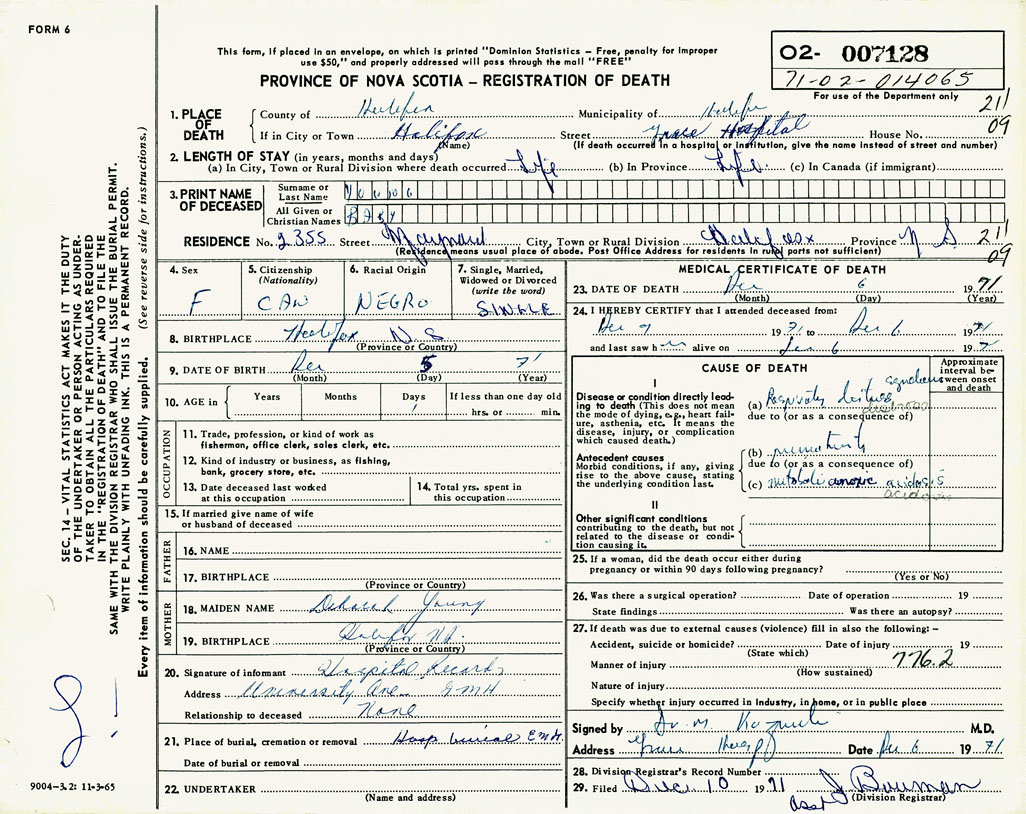 FORM 6
This form, if placed in an envelope, on which is printed "Dominion Statistics – Free, penalty for improper
use $50," and properly addressed will pass through the mail "FREE"
PROVINCE OF NOVA SCOTIA – REGISTRATION OF DEATH
02- 007128
71-02-014065
For use of the Department only
211
09
1. PLACE OF DEATH
County of Halifax Municipality of Halifax
If in City or Town Halifax Street Grace Hospital House No.
(Name) (If death occurred in a hospital or institution, give the name instead of street and number)
2. LENGTH OF STAY (in years, months and days)
(a) In City, Town or Rural Division where death occurred Life (b) In Province Life (c) In Canada (if immigrant)
3. PRINT NAME OF DECEASED
Surname or Last Name YOUNG
All Given or Christian Names BABY
RESIDENCE No. 2355 Street Maynard City, Town or Rural Division Halifax Province N S
(Residence means usual place of abode. Post Office Address for residents in rural parts not sufficient)
211
09
4. Sex
F
5. Citizenship (Nationality)
CAN
6. Racial Origin
NEGRO
7. Single, Married, Widowed or Divorced (write the word)
SINGLE
8. BIRTHPLACE Halifax N.S
(Province or Country)
9. DATE OF BIRTH Dec 5 71
(Month) (Day) (Year)
10. AGE in Years Months Days If less than one day
1 hrs. or min.
OCCUPATION
11. Trade, profession, or kind of work as
fisherman, office clerk, sales clerk, etc.
12. Kind of industry or business, as fishing,
bank, grocery store, etc.
13. Date deceased last worked
at this occupation
14. Total yrs. spent in
this occupation
15. If married give name of wife
or husband of deceased
FATHER
16. NAME
17. BIRTHPLACE
(Province or Country)
MOTHER
18. MAIDEN NAME Deborah Young
19. BIRTHPLACE Halifax NS.
(Province or Country)
20. Signature of informant Hospital Records
Address University Ave GMH
Relationship to deceased None
21. Place of burial, cremation or removal Hosp burial
Date of burial or removal
22. UNDERTAKER
(Name and address)
MEDICAL CERTIFICATE OF DEATH
23. DATE OF DEATH Dec 6 1971
(Month) (Day) (Year)
24. I HEREBY CERTIFY that I attended deceased from:
Dec 1971 to Dec 6 1971
and last saw h alive on Dec 6 197
CAUSE OF DEATH
Approximate interval between onset and death
I
Disease or condition directly leading to death (This does not
the mode of dying, e.g., heart failure, asthenia, etc. It means the
disease, injury, or complication
which caused death.)
(a) Respiratory distress syndrome
due to (or as a consequence of)
Antecedent causes
Morbid conditions, if any, giving
rise to the above cause, stating
the underlying condition last.
(b) prematurity
due to (or as a consequence of)
(c) metabolic anoxic acidosis
acidosis
II
Other significant conditions
contributing to the death, but not
related to the disease or condition causing it.
25. If a woman, did the death occur either during
pregnancy or within 90 days following pregnancy?
(Yes or No)
26. Was there a surgical operation? Date of operation 19
State findings Was there an autopsy?
27. If death was due to external causes (violence) fill in also the following: –
Accident, suicide or homicide? Date of injury 19
(State which) 776.2
Manner of injury
(How sustained)
Nature of injury
Specify whether injury occurred in industry, in home, or in public place
Signed by Dr. M. M.D.
Address Grace Date Dec 6 1971
28. Division Registrar's Record Number
29. Filed Dec. 10 1971 J Bowman
asst (Division Registrar)
SEC. 14 – VITAL STATISTICS ACT MAKES IT THE DUTY
OF THE UNDERTAKER OR PERSON ACTING AS UNDERTAKER TO OBTAIN ALL THE PARTICULARS REQUIRED
IN THE "REGISTRATION OF DEATH" AND TO FILE THE
SAME WITH THE DIVISION REGISTRAR WHO SHALL ISSUE THE BURIAL PERMIT.
WRITE PLAINLY WITH UNFADING INK. THIS IS A PERMANENT RECORD.
Every item of information should be carefully supplied. (See reverse side for instructions.)
9004–3.2: 11-3-65